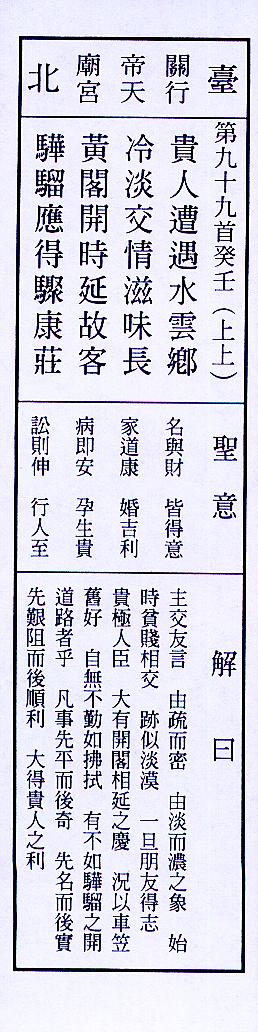 臺
行天宮
關帝廟
北
第九十九首癸壬(上上)
貴人遭遇水雲鄉
冷淡交情滋味長
黃閣開時延故客
驊騮應得驟康莊
聖意
名與財 皆得意
家道康 婚吉利
病即安 孕生貴
訟則伸 行人至
解曰
主交友言 由疏而密 由淡而濃之象 始
時貧賤相交 跡似淡漠 一旦朋友得志
貴極人臣 大有開閣相延之慶 況以車笠
舊好 自無不勤如拂拭 有不如驊騮之開
道路者乎 凡事先平而後奇 先名而後實
先艱阻而後順利 大得貴人之利